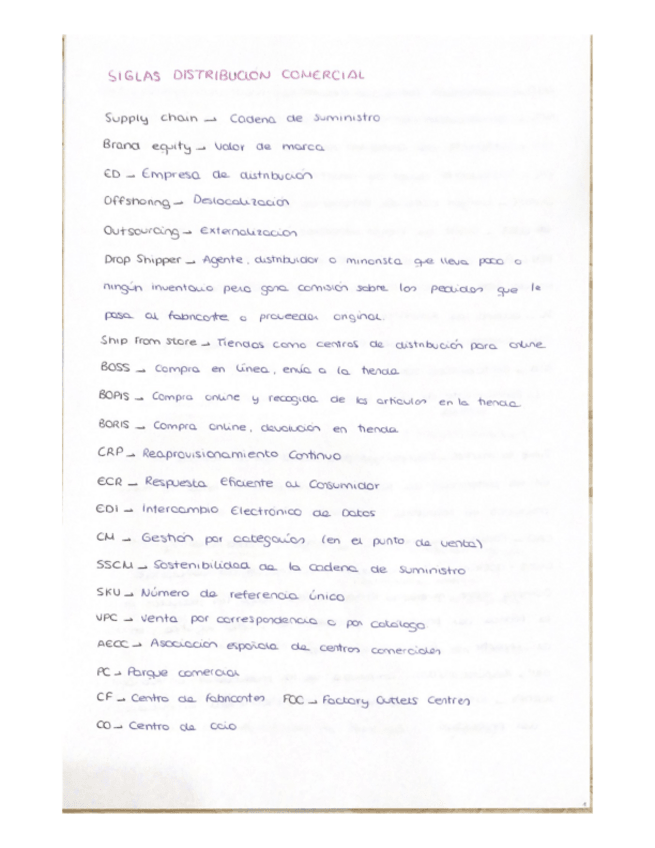 SIGLAS DISTRIBUCIÓN COMERCIAL
Supply chain → Cadena de suministro
Brand equity → Valor de marca
ED → Empresa de distribución
Offshoring → Deslocalización
Outsourcing → Externalización
Drop Shipper → Agente, distribuidor o minorista que lleva poco o
ningún inventario pero gana comisión sobre los pedidos que le
pasa al fabricante o proveedor original.
Ship from store → Tiendas como centros de distribución para online
BOSS → Compra en línea, envío a la tienda
BOPIS → Compra online y recogida de los artículos en la tienda
BORIS → Compra online, devolución en tienda
CRP → Reaprovisionamiento Continuo
ECR → Respuesta Eficiente al Consumidor
EDI → Intercambio Electrónico de Datos
CM → Gestión por categorías (en el punto de venta)
SSCM → Sostenibilidad de la cadena de suministro
SKU → Número de referencia único
VPC → Venta por correspondencia o por catálogo
AECC → Asociación española de centros comerciales
PC → Parque comercial
CF → Centro de fabricantes FOC → Factory Outlets Centres
CO → Centro de ocio